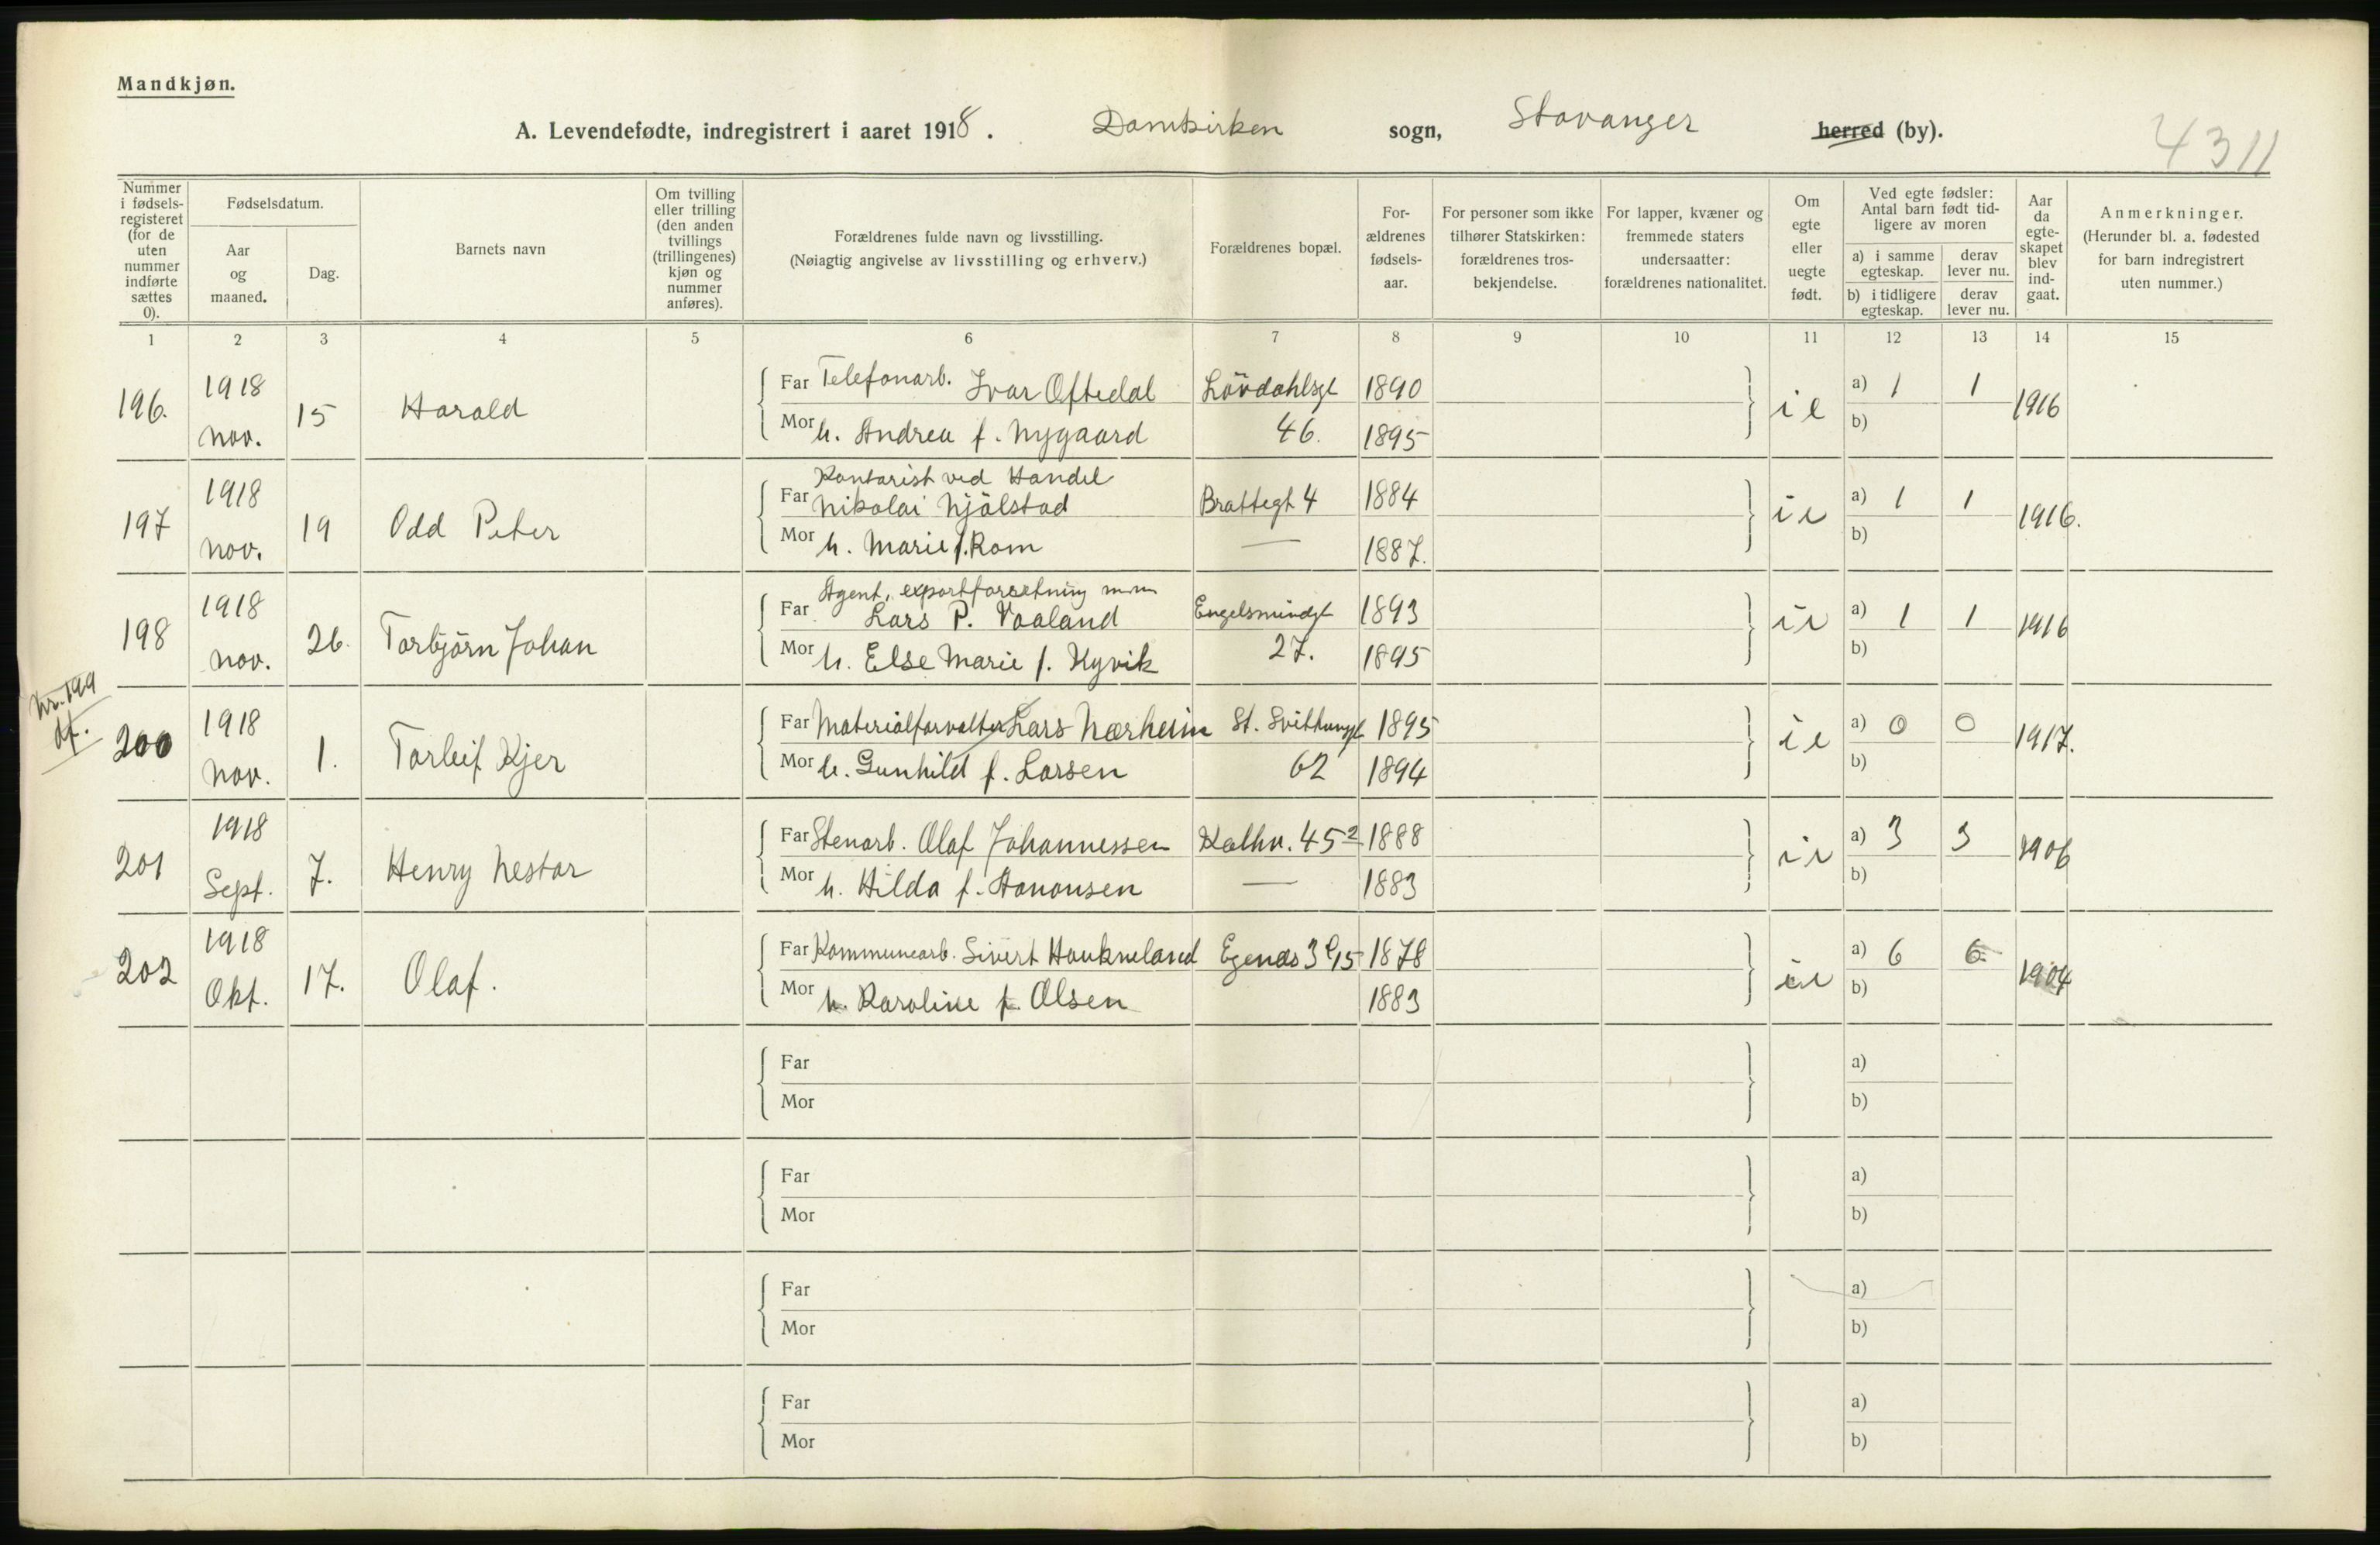 Mandkjøn.
A. Levendefødte, indregistrert i aaret 1918. Domkirken sogn, Stavanger herred (by).
4311
Nummer i fødselsregisteret (for de uten nummer indførte sættes 0).
Fødselsdatum.
Aar og maaned.
Dag.
Barnets navn
Om tvilling eller trilling (den anden tvillings (trillingenes) kjøn og nummer anføres).
Forældrenes fulde navn og livsstilling.
(Nøiagtig angivelse av livsstilling og erhverv.)
Forældrenes bopæl.
Forældrenes fødselsaar.
For personer som ikke tilhører Statskirken: forældrenes trosbekjendelse.
For lapper, kvæner og fremmede staters undersaatter: forældrenes nationalitet.
Om egte eller uegte født.
Ved egte fødsler: Antal barn født tidligere av moren
a) i samme egteskap.
derav lever nu.
b) i tidligere egteskap.
derav lever nu.
Aar da egteskapet blev indgaat.
Anmerkninger.
(Herunder bl. a. fødested for barn indregistrert uten nummer.)
1 2 3 4 5 6 7 8 9 10 11 12 13 14 15
196. 1918 nov. 15 Harald
Far Telefonarb. Ivar Oftedal Lövdahlsgt 1890
Mor h. Andrea f. Nygaard 46. 1895
ie a) 1 1 1916
b)
197 1918 nov. 19 Odd Peter
Kontorist ved Handel
Far Nikolai Njälstad Brattegt 4 1884
Mor h. Marie f. Rom — 1887.
ie a) 1 1 1916.
b)
198 1918 nov. 26. Torbjörn Johan
Agent, exportforretning
Far Lars P. Vaaland Engelsmindgt 1893
Mor h. Else Marie f. Kyvik 27. 1895
ie a) 1 1 1916
b)
Nr. 199
df.
200 1918 nov. 1. Torleif Kjer
Far Materialforvalter Lars Nærheim St. Svithunsgt 1895
Mor h. Gunhild f. Larsen 62 1894
ie a) 0 0 1917.
b)
201 1918 Sept. 7. Henry Nestor
Far Stenarb. Olaf Johannessen Kalhv. 45² 1888
Mor h. Hilda f. Aanonsen — 1883
ie a) 3 3 1906
b)
202 1918 Okt. 17. Olaf.
Far Kommunearb. Sivert Haukneland Egenes 3 1878
Mor h. Karoline f. Olsen 1883
ie a) 6 6 1904
b)
Far a)
Mor b)
Far a)
Mor b)
Far a)
Mor b)
Far a)
Mor b)